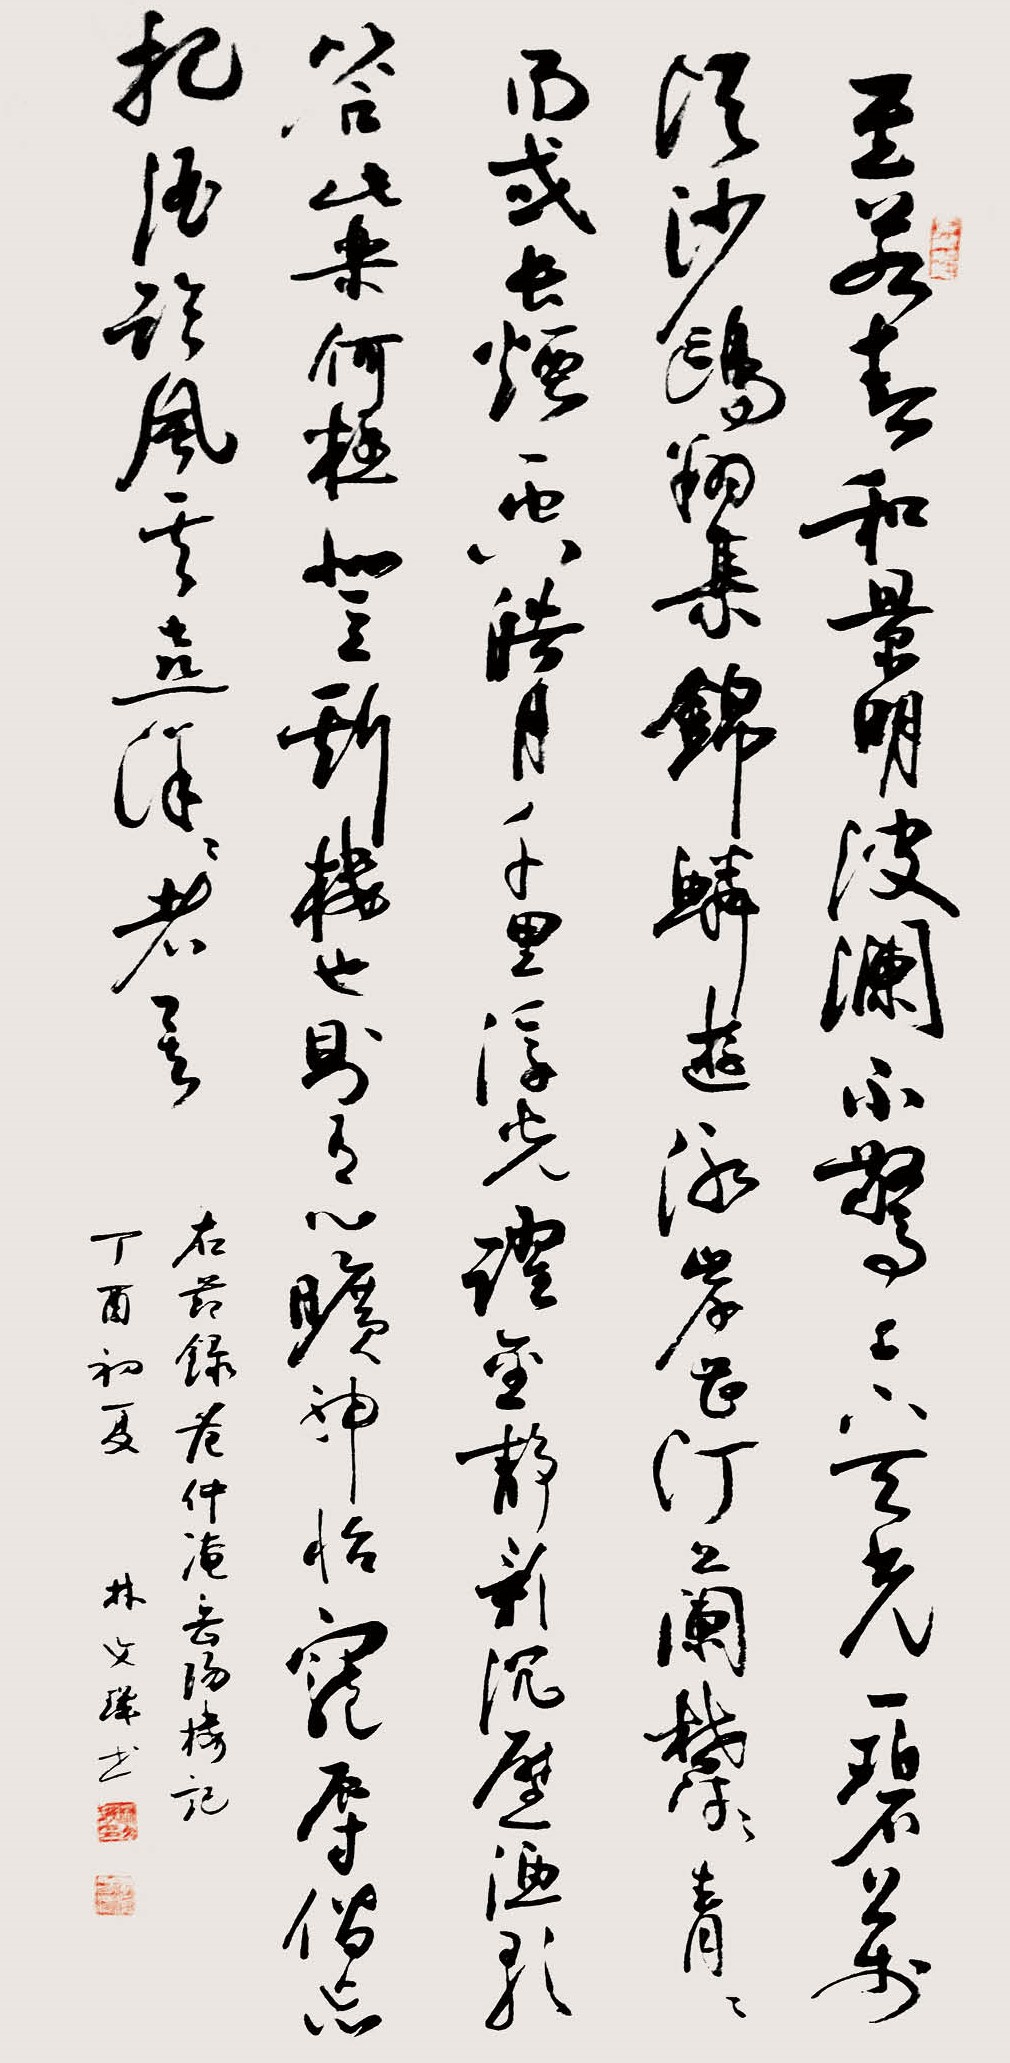 至若春和景明波瀾不驚上下天光一碧萬
頃沙鷗翔集錦鱗遊泳岸芷汀蘭鬱〻青〻
而或長煙一空皓月千里浮光躍金靜影沉璧漁歌
答此樂何極登斯樓也則有心曠神怡寵辱偕忘
把酒臨風其喜洋〻者矣
右節錄范仲淹岳陽樓記
丁酉初夏 林文书